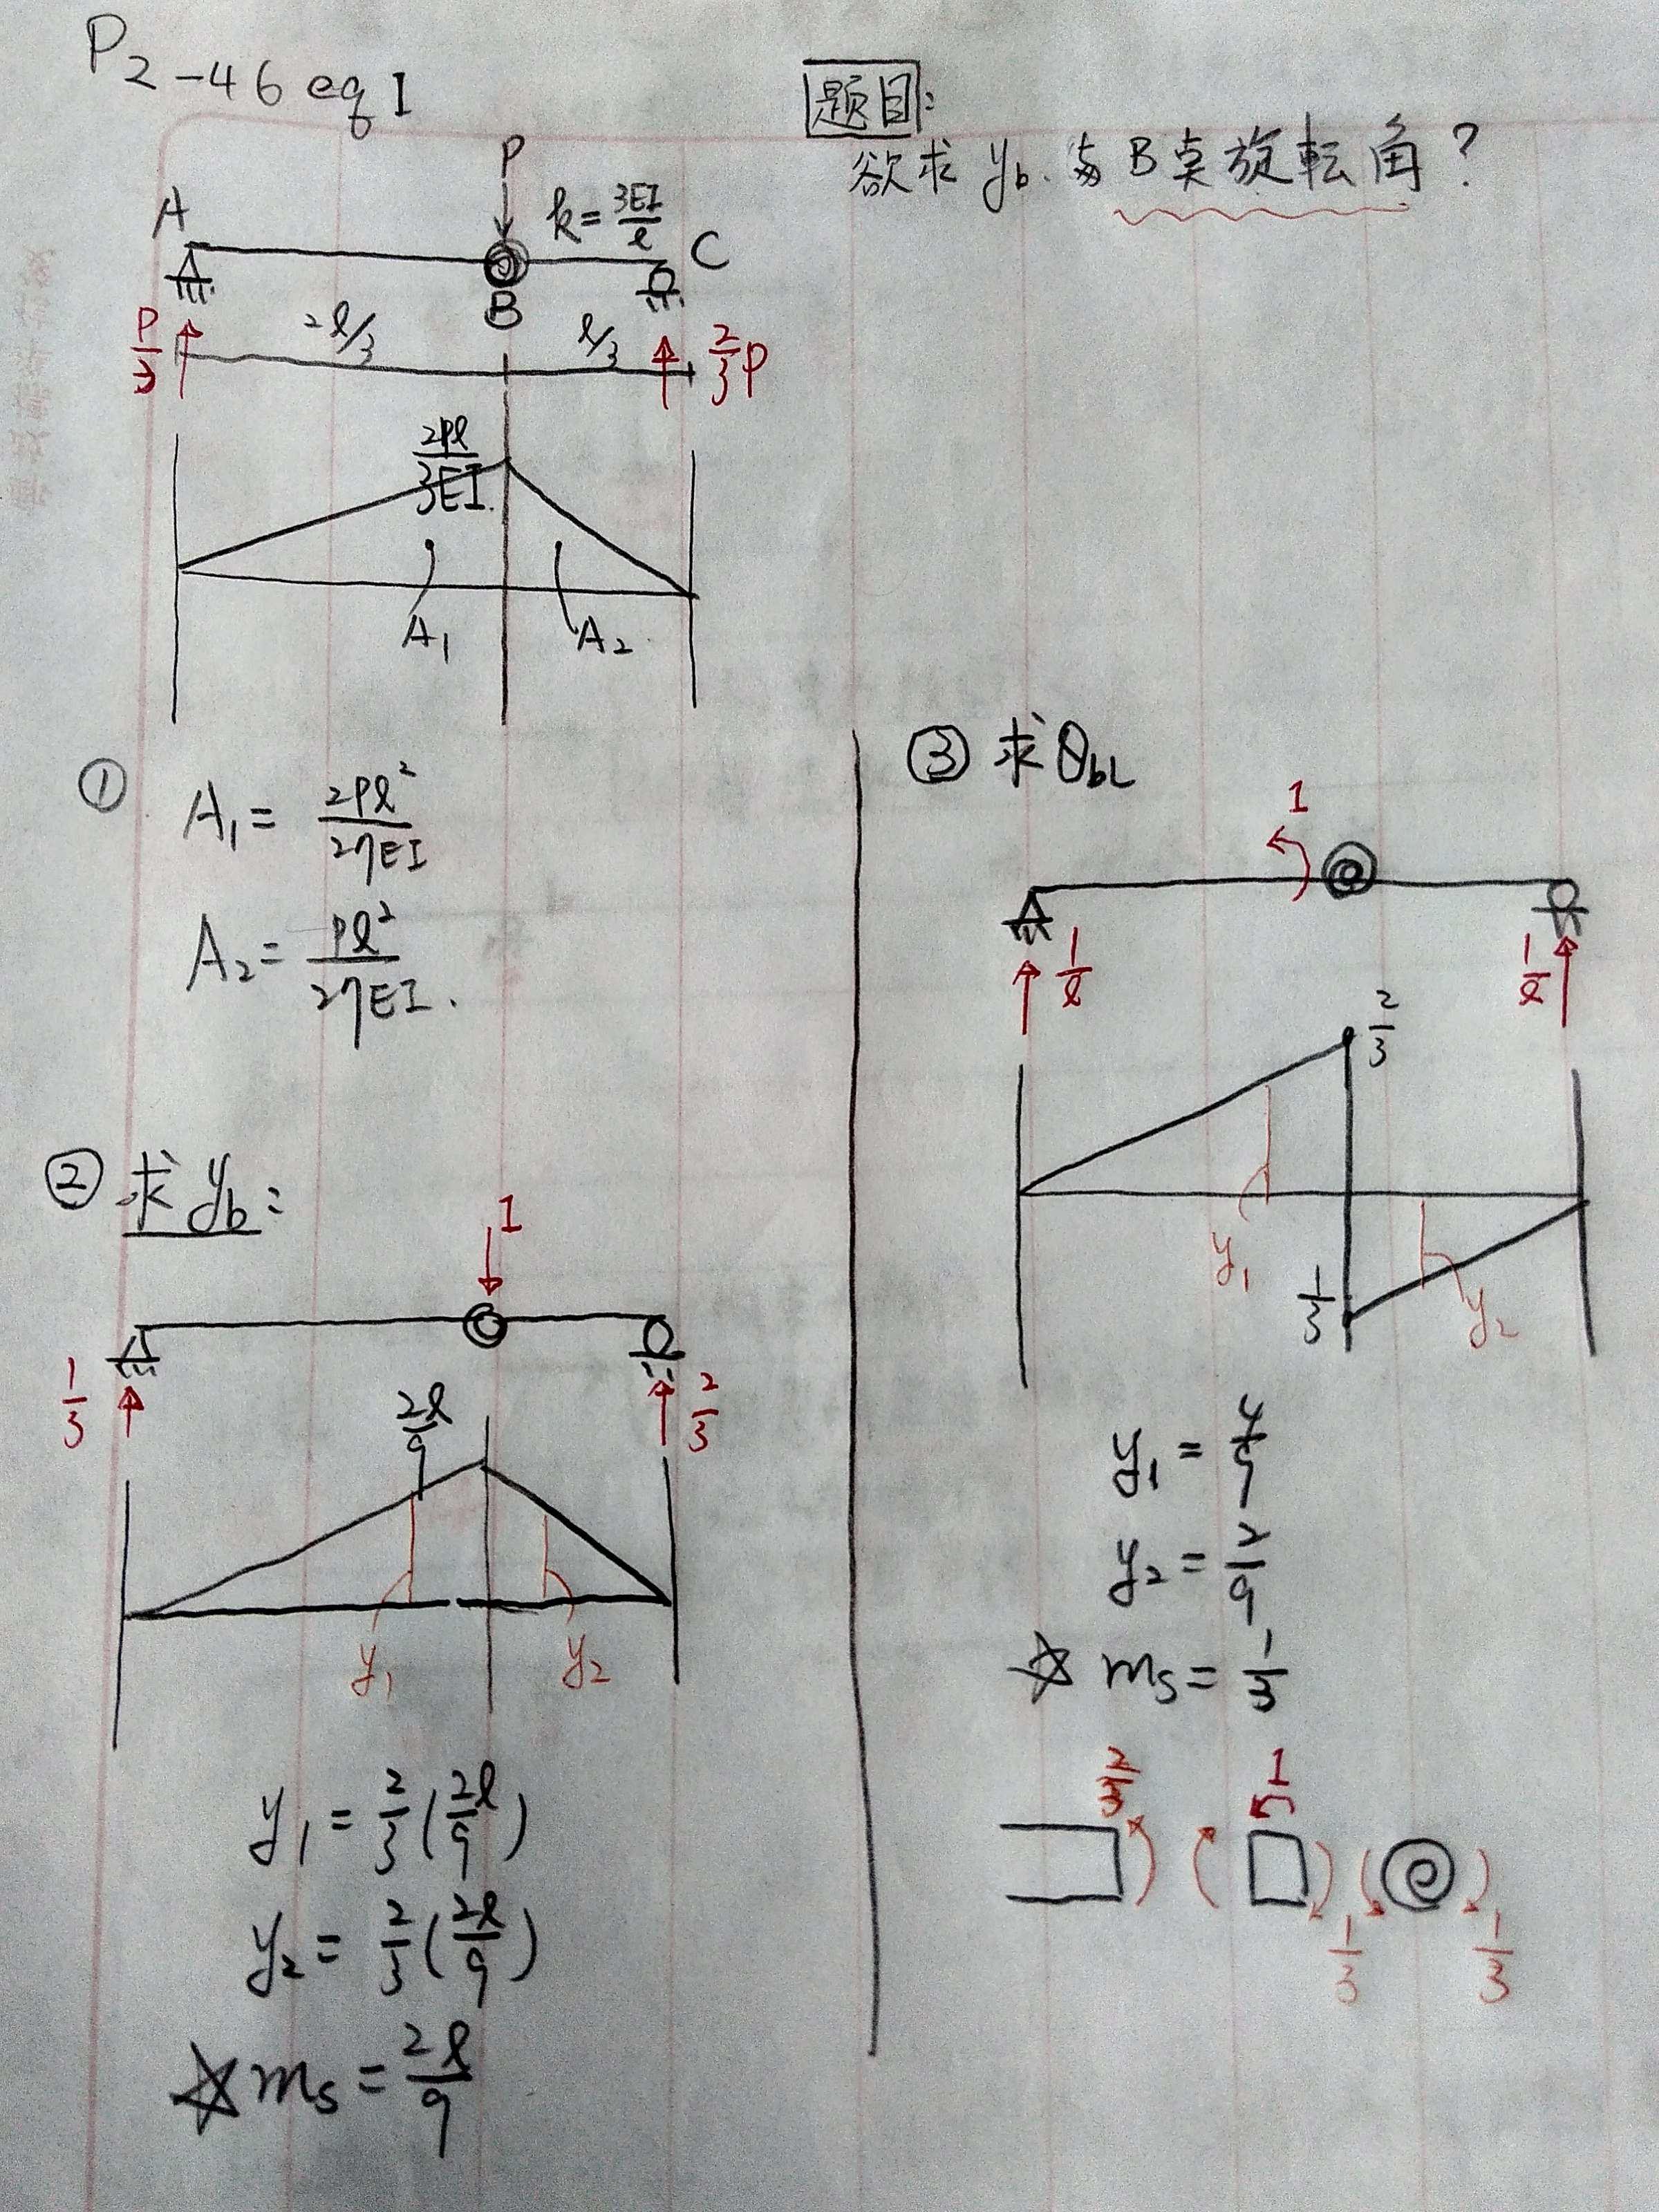 P2-46 eq I
题目:
欲求 yb. 与 B 点旋転角?
P
A
k = 3EI/ℓ
C
B
2ℓ/3
ℓ/3
P/3
2/3 P
2Pℓ/3EI.
A1
A2
① A1 = 2Pℓ²/27EI
A2 = Pℓ²/27EI.
② 求 yb:
1
1/3
2/3
2ℓ/9
y1
y2
y1 = 2/3 (2ℓ/9)
y2 = 2/3 (2ℓ/9)
☆ ms = 2ℓ/9
③ 求 θbL
1
1/ℓ
1/ℓ
2/3
y1
1/3
y2
y1 = 4/9
y2 = 2/9
☆ ms = 1/3
2/3
1
1/3
1/3